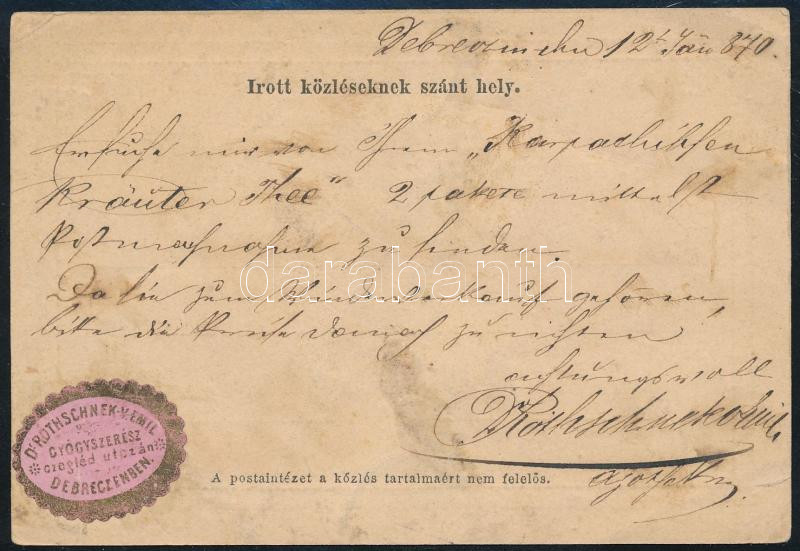 Debreczin den 12t Jän 870.
Irott közléseknek szánt hely.
Ersuche mir von Ihrem „Karpathischen
Kräuter Thee" 2 pakete mittelst
Postnachnahme zu senden.
Da sie zum gehören,
bitte die Preise danach zu richten
achtungsvoll
Rothschnek
Dr ROTHSCHNEK V. EMIL
GYÓGYSZERÉSZ
czegléd utczán
DEBRECZENBEN.
A postaintézet a közlés tartalmaért nem felelős.
darabanth